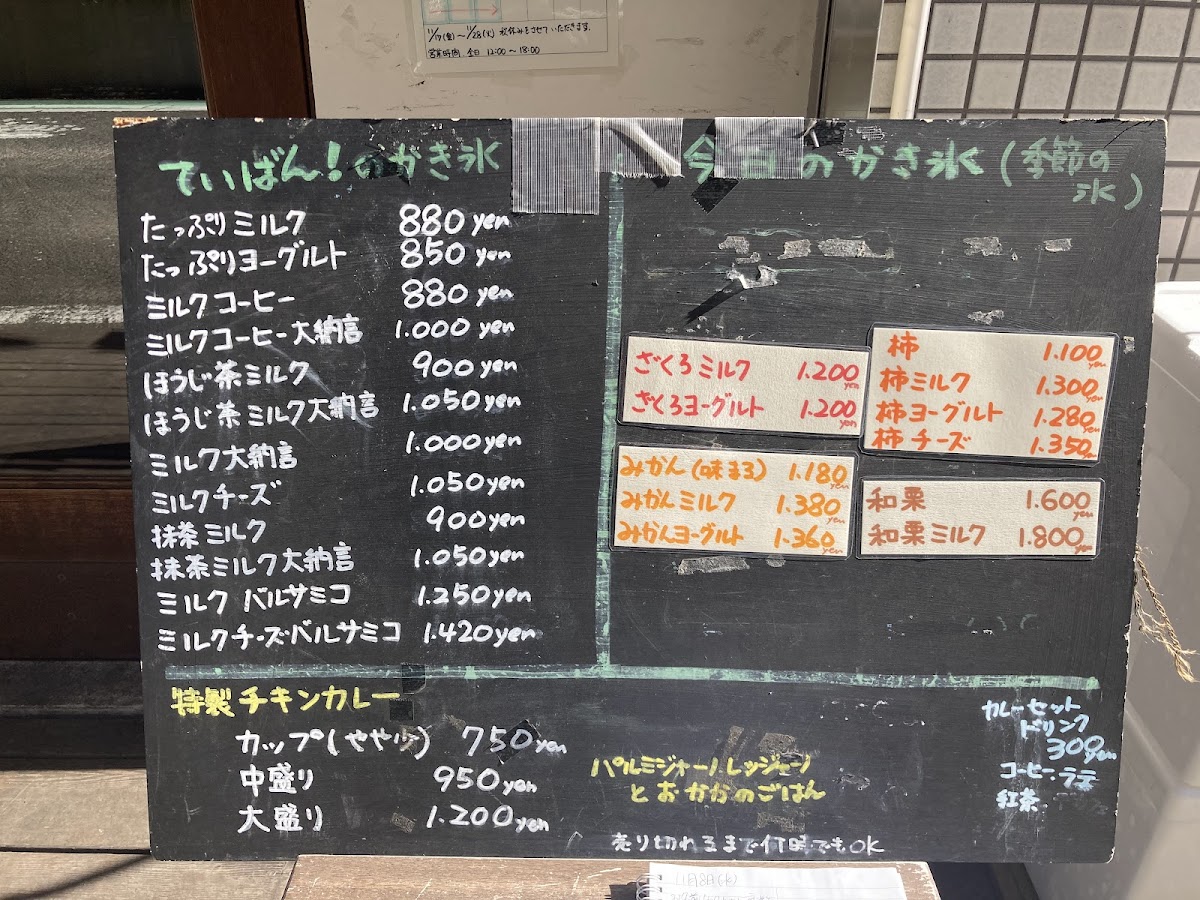 11/17(金)〜11/28(火) お休みをさせていただきます。
営業時間 全日 12:00〜18:00
ていばん!のかき氷
たっぷりミルク 880yen
たっぷりヨーグルト 850yen
ミルクコーヒー 880yen
ミルクコーヒー大納言 1.000yen
ほうじ茶ミルク 900yen
ほうじ茶ミルク大納言 1.050yen
ミルク大納言 1.000yen
ミルクチーズ 1.050yen
抹茶ミルク 900yen
抹茶ミルク大納言 1.050yen
ミルク バルサミコ 1.250yen
ミルクチーズバルサミコ 1.420yen
今日のかき氷(季節の氷)
ざくろミルク 1.200yen
ざくろヨーグルト 1.200yen
柿 1.100yen
柿ミルク 1.300yen
柿ヨーグルト 1.280yen
柿チーズ 1.350yen
みかん(味まる) 1.180yen
みかんミルク 1.380yen
みかんヨーグルト 1.360yen
和栗 1.600yen
和栗ミルク 1.800yen
特製チキンカレー
カップ(やや少) 750yen
中盛り 950yen
大盛り 1.200yen
パルミジャーノレッジャーノ
とおかかのごはん
売り切れるまで何時でもOK
カレーセット
ドリンク
300yen
コーヒー.ラテ
紅茶
11月8日(水)